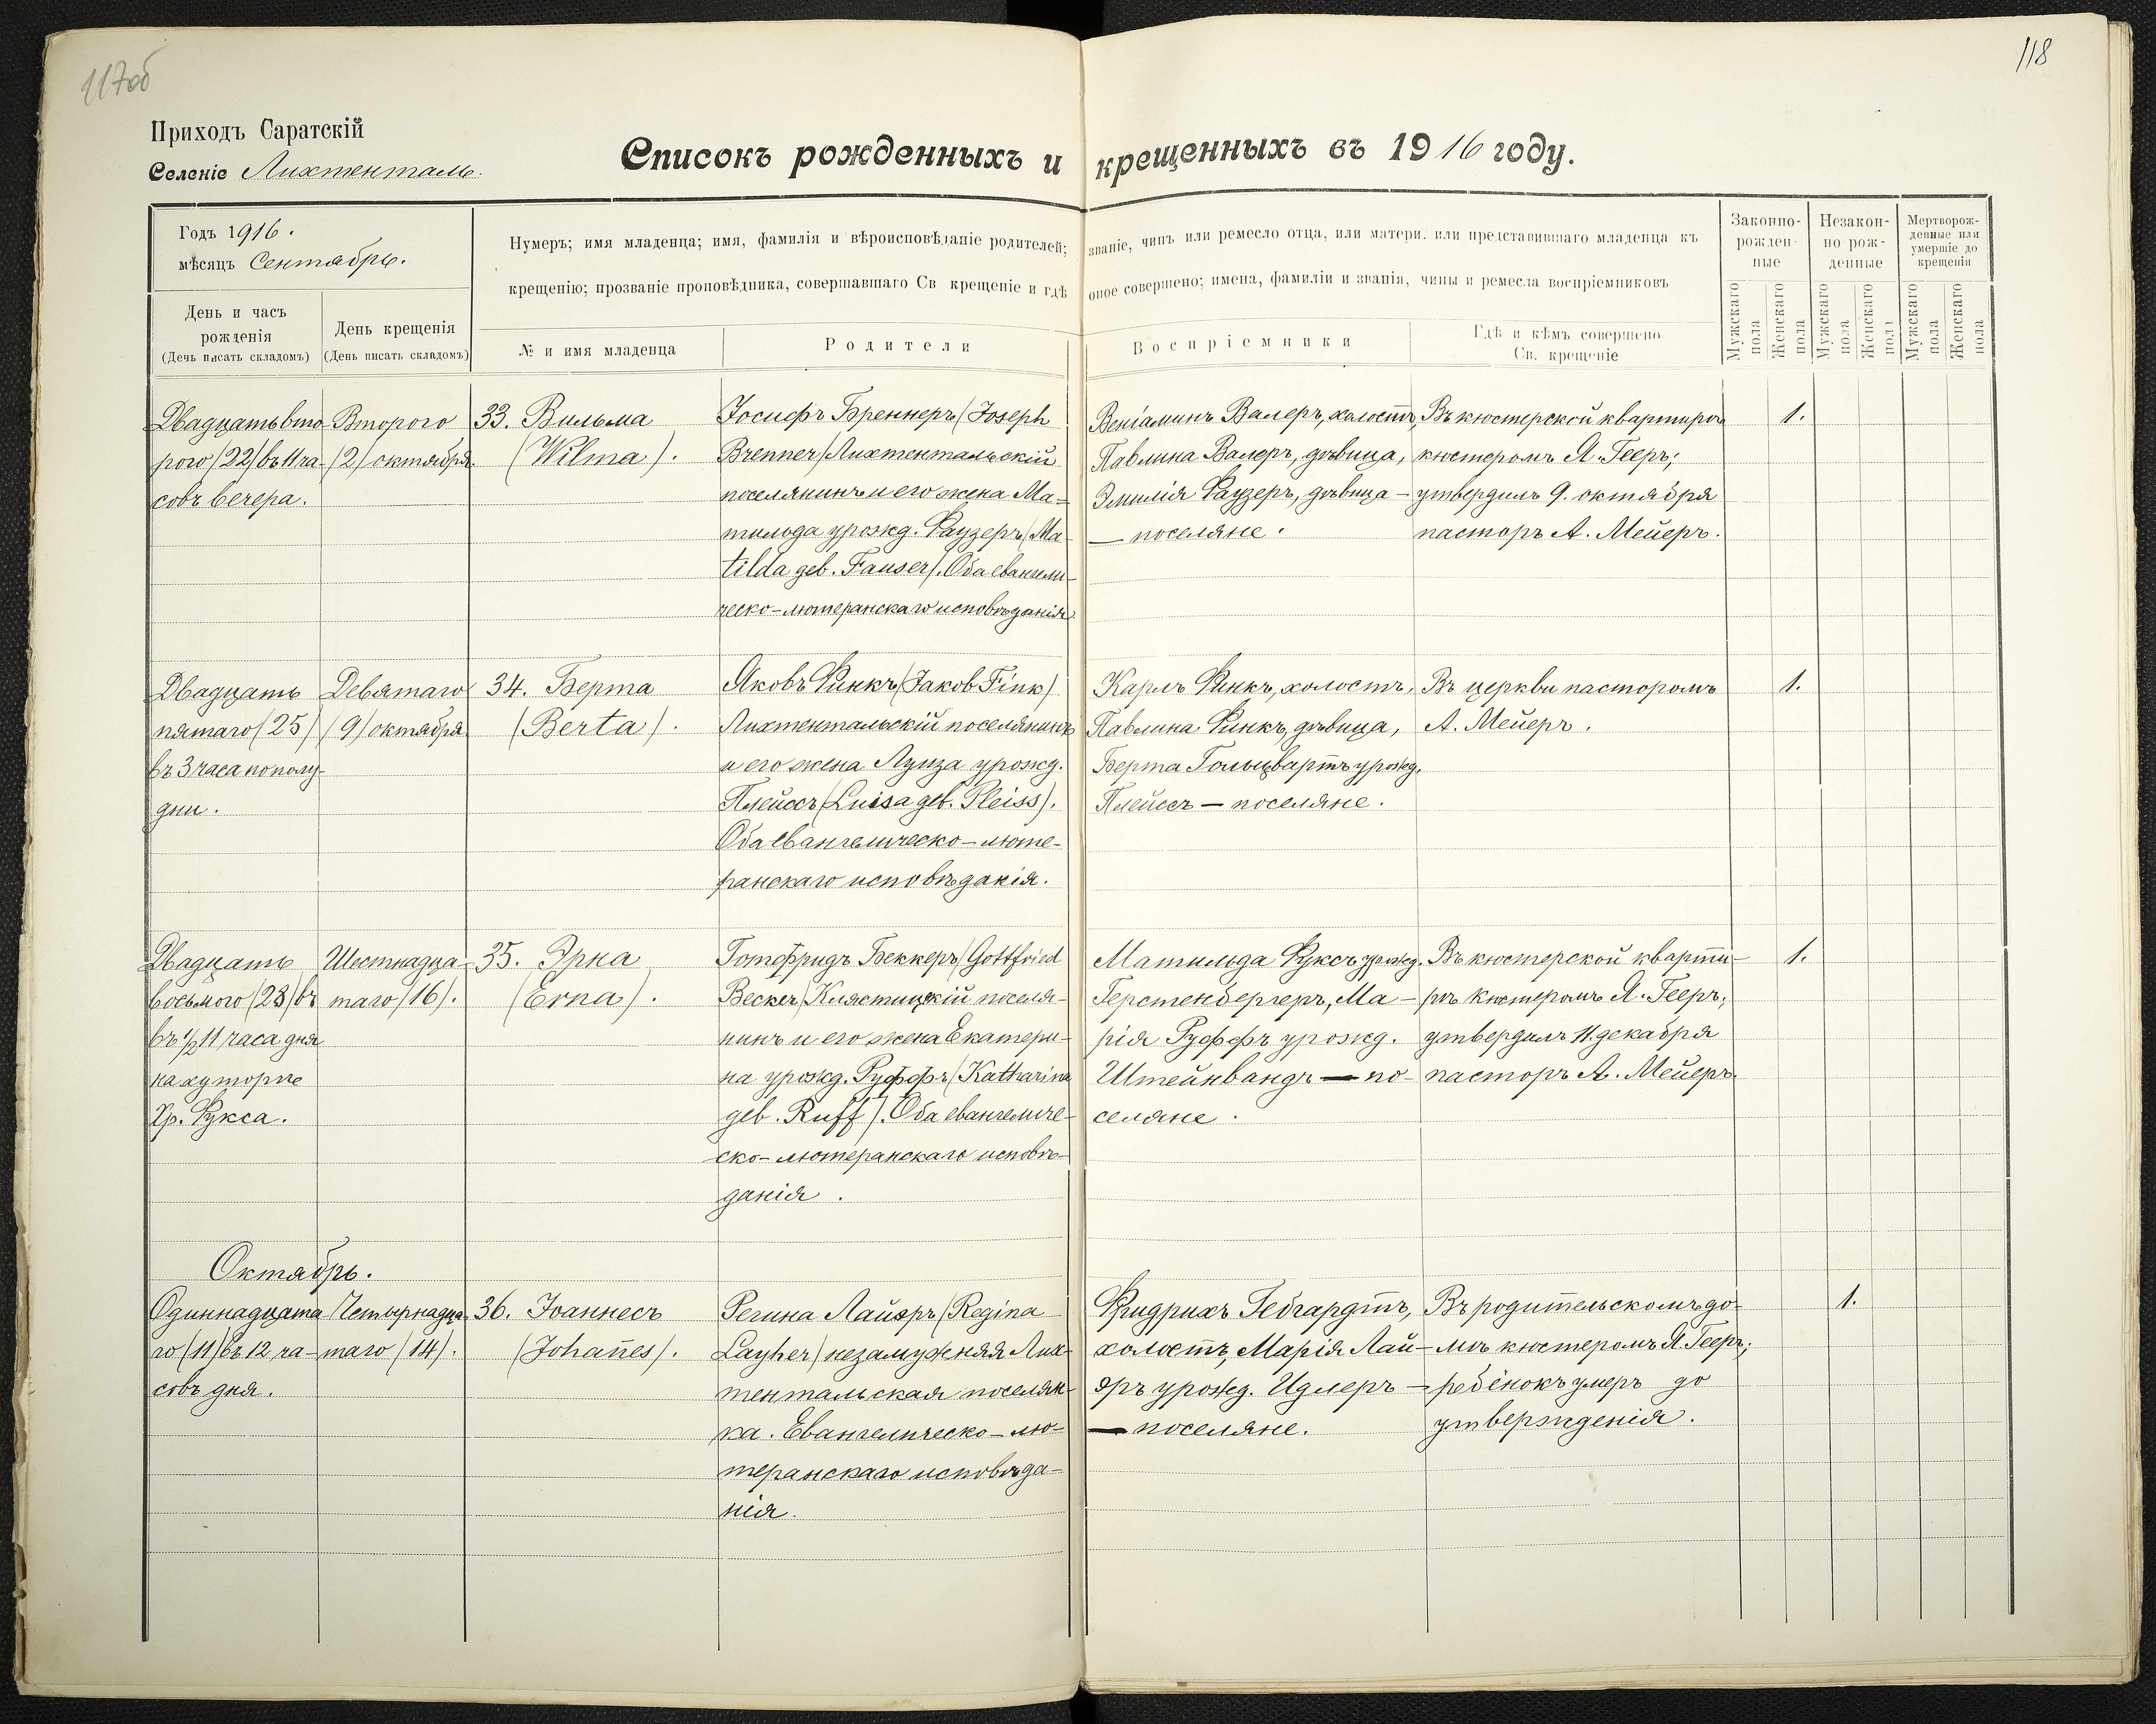 117об
118
Приходъ Саратскій
Селеніе Лихтенталь.
Списокъ рожденныхъ и крещенныхъ въ 1916 году.
Годъ 1916.
мѣсяцъ Сентябрь.
Нумеръ; имя младенца; имя, фамилія и вѣроисповѣданіе родителей; званіе, чинъ или ремесло отца, или матери, или представившаго младенца къ
крещенію; прозваніе проповѣдника, совершавшаго Св крещеніе и гдѣ оное совершено; имена, фамиліи и званія, чины и ремесла воспріемниковъ
День и часъ
рожденія
(День писать складомъ)
День крещенія
(День писать складомъ)
№ и имя младенца
Родители
Воспріемники
Гдѣ и кѣмъ совершено
Св. крещеніе
Законно-
рожден-
ные
Незакон-
но рож-
денные
Мертворож-
денные или
умершіе до
крещенія
Мужскаго
пола
Женскаго
пола
Мужскаго
пола
Женскаго
пола
Мужскаго
пола
Женскаго
пола
Двадцать вто-
рого (22) въ 11 ча-
совъ вечера.
Второго
(2) октября
33. Вильма
(Wilma).
Іосифъ Бреннеръ (Joseph
Brenner) Лихтентальскій
поселянинъ и его жена Ма-
тильда урожд. Фаузеръ (Ma-
tilda geb. Fauser). Оба евангели-
ческо-лютеранскаго исповѣданія
Веніаминъ Валеръ, холостъ,
Павлина Валеръ, дѣвица,
Эмилія Фаузеръ, дѣвица –
— поселяне.
Въ кюстерской квартирѣ
кюстеромъ Я. Гееръ;
утвердилъ 9. октября
пасторъ А. Мейеръ.
1.
Двадцать
пятаго (25)
въ 3 часа пополу-
дни.
Девятаго
(9) октября
34. Берта
(Berta).
Яковъ Финкъ (Jakob Fink)
Лихтентальскій поселянинъ
и его жена Луиза урожд.
Плейссъ (Luisa geb. Pleiss).
Оба евангелическо-люте-
ранскаго исповѣданія.
Карлъ Финкъ, холостъ,
Павлина Финкъ, дѣвица,
Берта Гольцвартъ урожд.
Плейссъ — поселяне.
Въ церкви пасторомъ
А. Мейеръ.
1.
Двадцать
восьмого (28) въ
въ 1/2 11 часа дня
на хуторѣ
Хр. Фукса.
Шестнадца-
таго (16).
35. Эрна
(Erna).
Готфридъ Беккеръ (Gottfried
Becker) Клястицкій поселя-
нинъ и его жена Екатери-
на урожд. Руффъ (Katharina
geb. Ruff). Оба евангеличе-
ско-лютеранскаго исповѣ-
данія.
Матильда Фуксъ урожд.
Герстенбергеръ, Ма-
рія Руффъ урожд.
Штейнвандъ — по-
селяне.
Въ кюстерской кварти-
рѣ кюстеромъ Я. Гееръ;
утвердилъ 11. декабря
пасторъ А. Мейеръ.
1.
Октябрь.
Одиннадцата-
го (11) въ 12 ча-
совъ дня.
Четырнадца-
таго (14).
36. Іоаннесъ
(Johañes).
Регина Лайэръ (Regina
Layher) незамужняя Лих-
тентальская поселян-
ка. Евангелическо-лю-
теранскаго исповѣда-
нія.
Фридрихъ Гебгардтъ,
холостъ, Марія Лай-
эръ урожд. Идлеръ –
— поселяне.
Въ родительскомъ до-
мѣ кюстеромъ Я. Гееръ;
ребёнокъ умеръ до
утвержденія.
1.